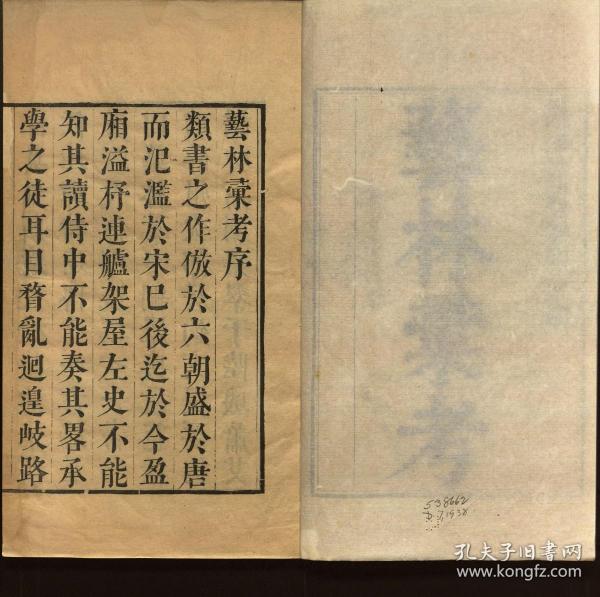 藝林彚考序
類書之作倣於六朝盛於唐
而氾濫於宋已後迄於今盈
廂溢杼連艫架屋左史不能
知其讀侍中不能奏其畧承
學之徒耳目瞀亂迴遑岐路
藝林彚考
538662
孔夫子旧书网
www.kongfz.com